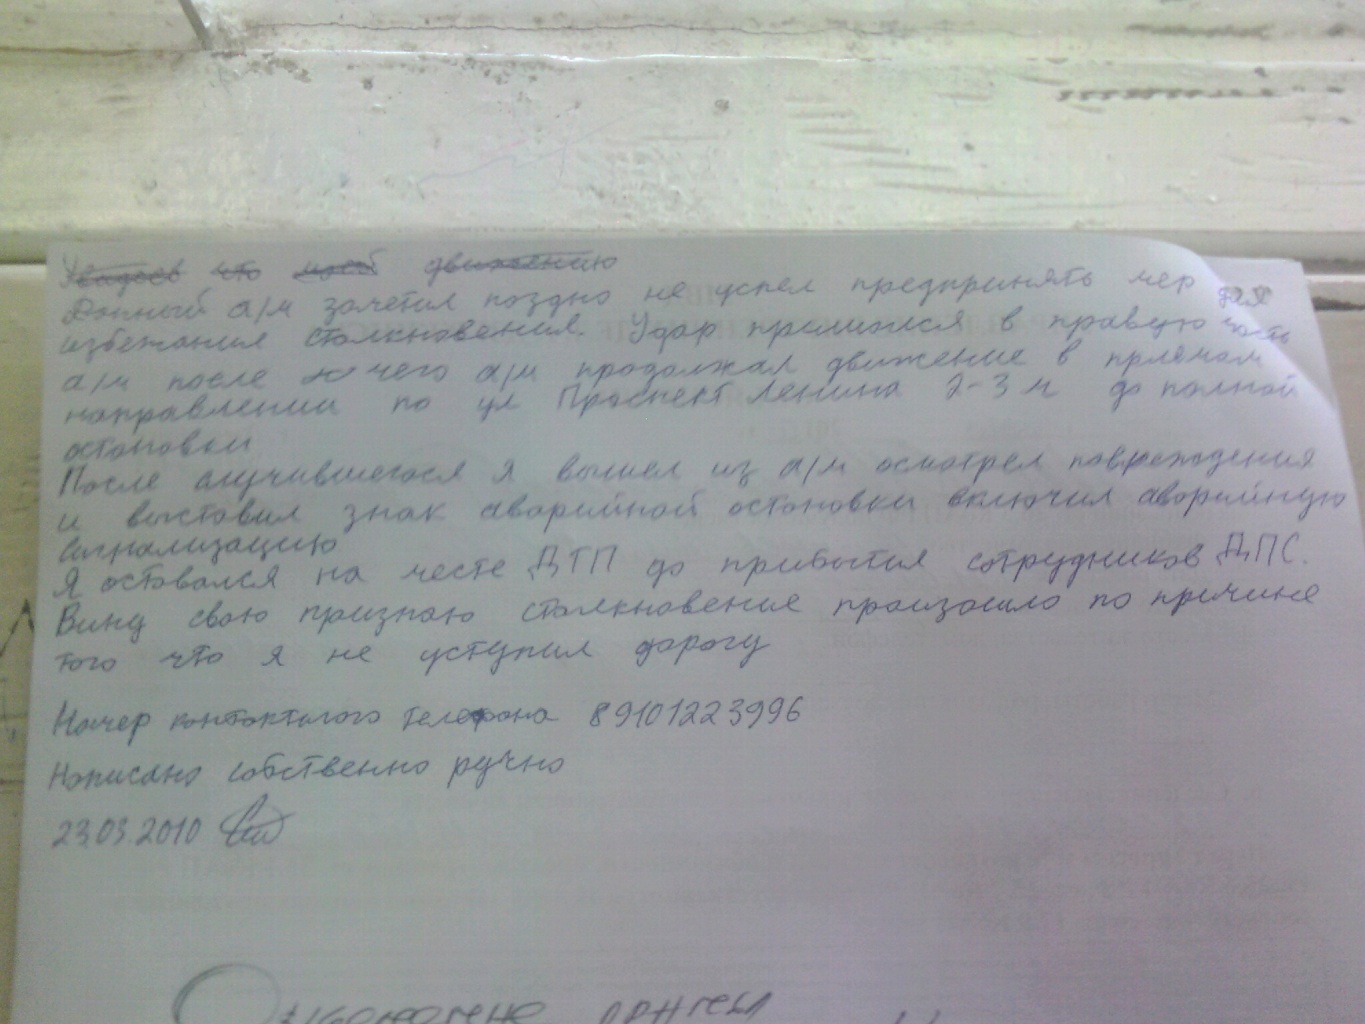 Увидев что моей движению
Данный а/м заметил поздно не успел предпринять мер для
избежания столкновения. Удар пришелся в правую часть
а/м после чего а/м продолжал движение в прямом
направлении по ул Проспект Ленина 2-3 м до полной
остановки
После случившегося я вышел из а/м осмотрел повреждения
и выставил знак аварийной остановки включил аварийную
сигнализацию
Я оставался на месте ДТП до прибытия сотрудников ДПС.
Вину свою признаю столкновение произошло по причине
того что я не уступил дорогу
Номер контактного телефона 89101223996
Написано собственно ручно
23.03.2010